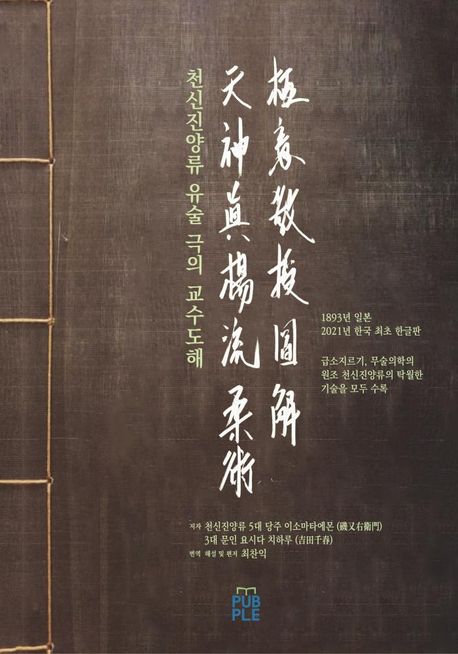 極意教授圖解
天神眞楊流柔術
천신진양류 유술 극의 교수도해
1893년 일본
2021년 한국 최초 한글판
급소지르기, 무술의학의
원조 천신진양류의 탁월한
기술을 모두 수록
저자 천신진양류 5대 당주 이소마타에몬 (磯又右衛門)
3대 문인 요시다 치하루 (吉田千春)
번역 해설 및 편저 최찬익
PUB
PLE